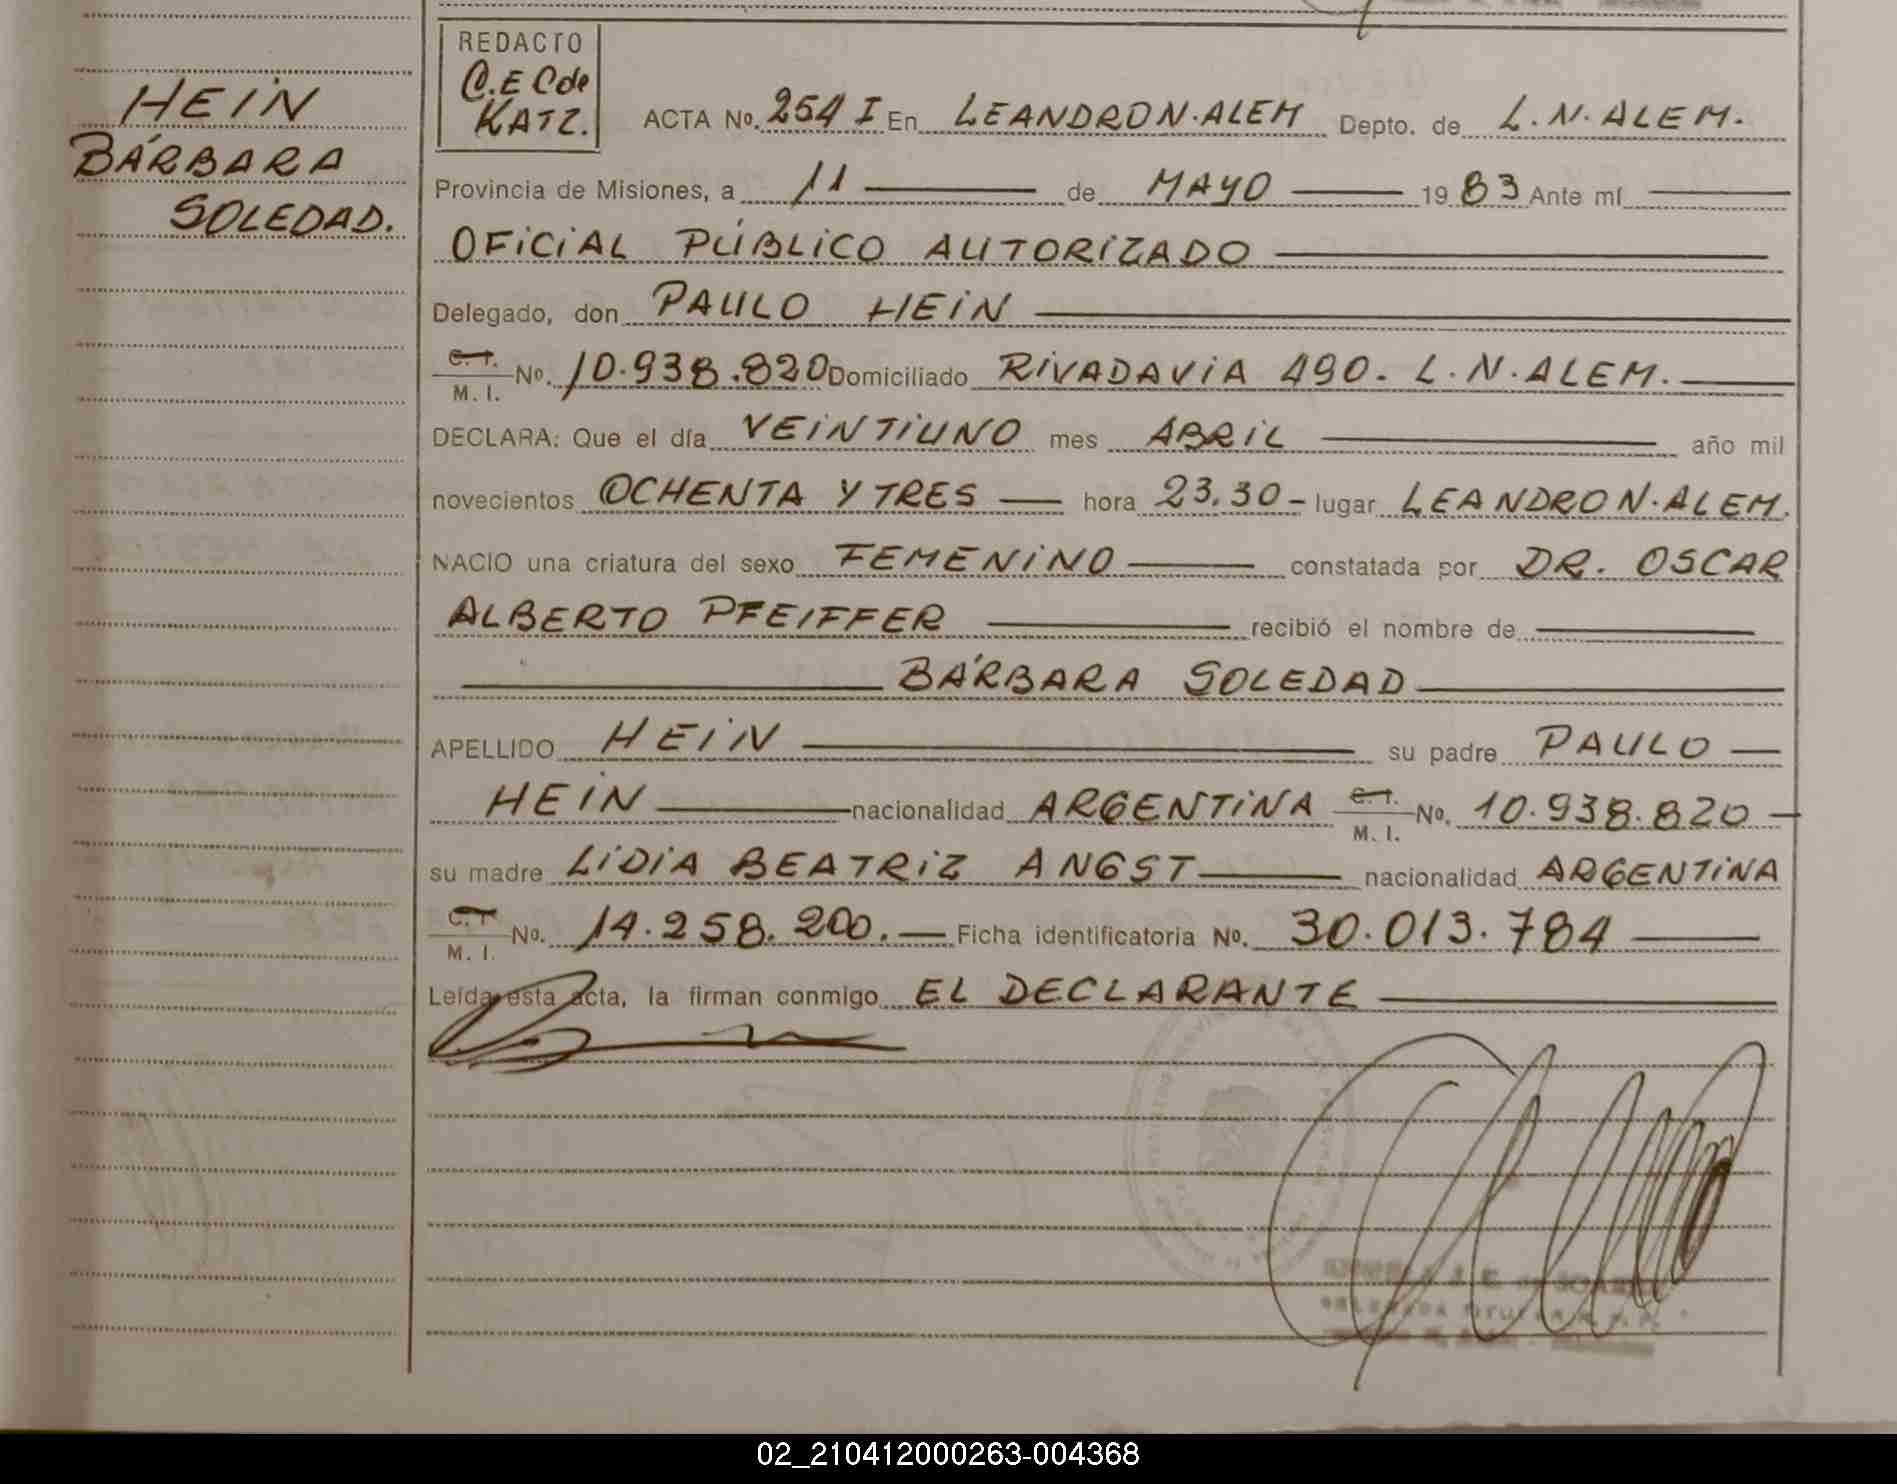 HEIN
BÁRBARA
SOLEDAD.
REDACTO
C.E C de
KATZ.
ACTA No. 254 I En LEANDRO N. ALEM Depto. de L. N. ALEM.
Provincia de Misiones, a 11 de MAYO 1983 Ante mí
OFICIAL PÚBLICO AUTORIZADO
Delegado, don PAULO HEIN
C. I. M. I. No. 10.938.820 Domiciliado RIVADAVIA 490. L. N. ALEM.
DECLARA: Que el día VEINTIUNO mes ABRIL año mil
novecientos OCHENTA Y TRES hora 23.30 - lugar LEANDRO N. ALEM.
NACIO una criatura del sexo FEMENINO constatada por DR. OSCAR
ALBERTO PFEIFFER recibió el nombre de
BÁRBARA SOLEDAD
APELLIDO HEIN su padre PAULO
HEIN nacionalidad ARGENTINA C. I. M. I. No. 10.938.820
su madre LIDIA BEATRIZ ANGST nacionalidad ARGENTINA
C. I M. I. No. 14.258.200. Ficha identificatoria No. 30.013.784
Leída esta acta, la firman conmigo EL DECLARANTE
02_210412000263-004368